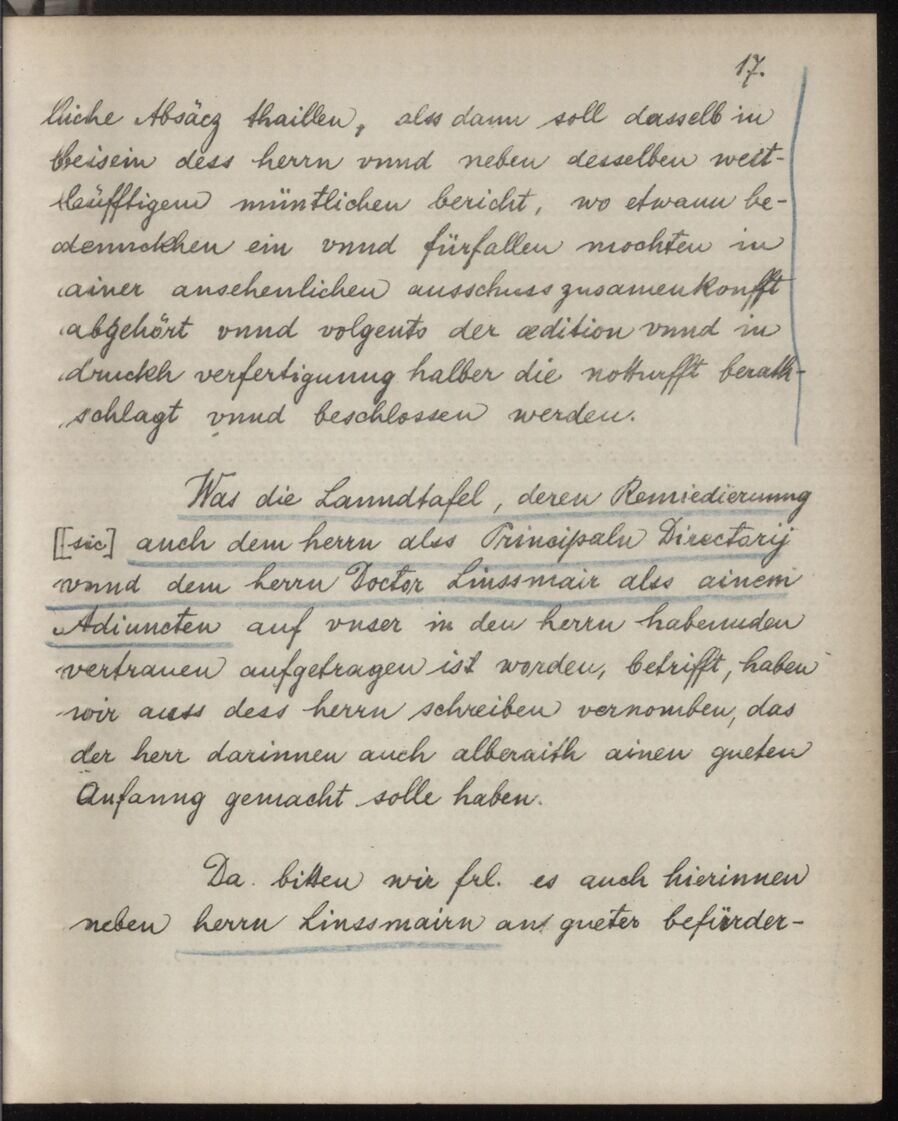 17.
lliche Absäcz thaillen, alss dann soll dasselb in
beisein dess herrn vnnd neben desselben weit-
leüfftigem müntlichen bericht, wo etwann be-
denuckhen ein vnnd fürfallen mochten in
ainer ansehenlichen ausschuss zusamenkonfft
abgehört vnnd volgents der ædition vnnd in
druckh verfertigunng halber die notturfft berath-
schlagt vnnd beschlossen werden.
Was die Lanndtafel, deren Remiedierunng
[sic] auch dem herrn alss Principaln Directorij
vnnd dem herrn Doctor Linssmair alss ainem
Adiuncten auf vnser in den herrn habennden
vertrauen aufgetragen ist worden, betrifft, haben
wir auss dess herrn schreiben vernomben, das
der herr darinnen auch alberaith ainen gueten
Anfanng gemacht solle haben.
Da bitten wir frl. es auch hierinnen
neben herrn Linssmairn an gueter befürder-